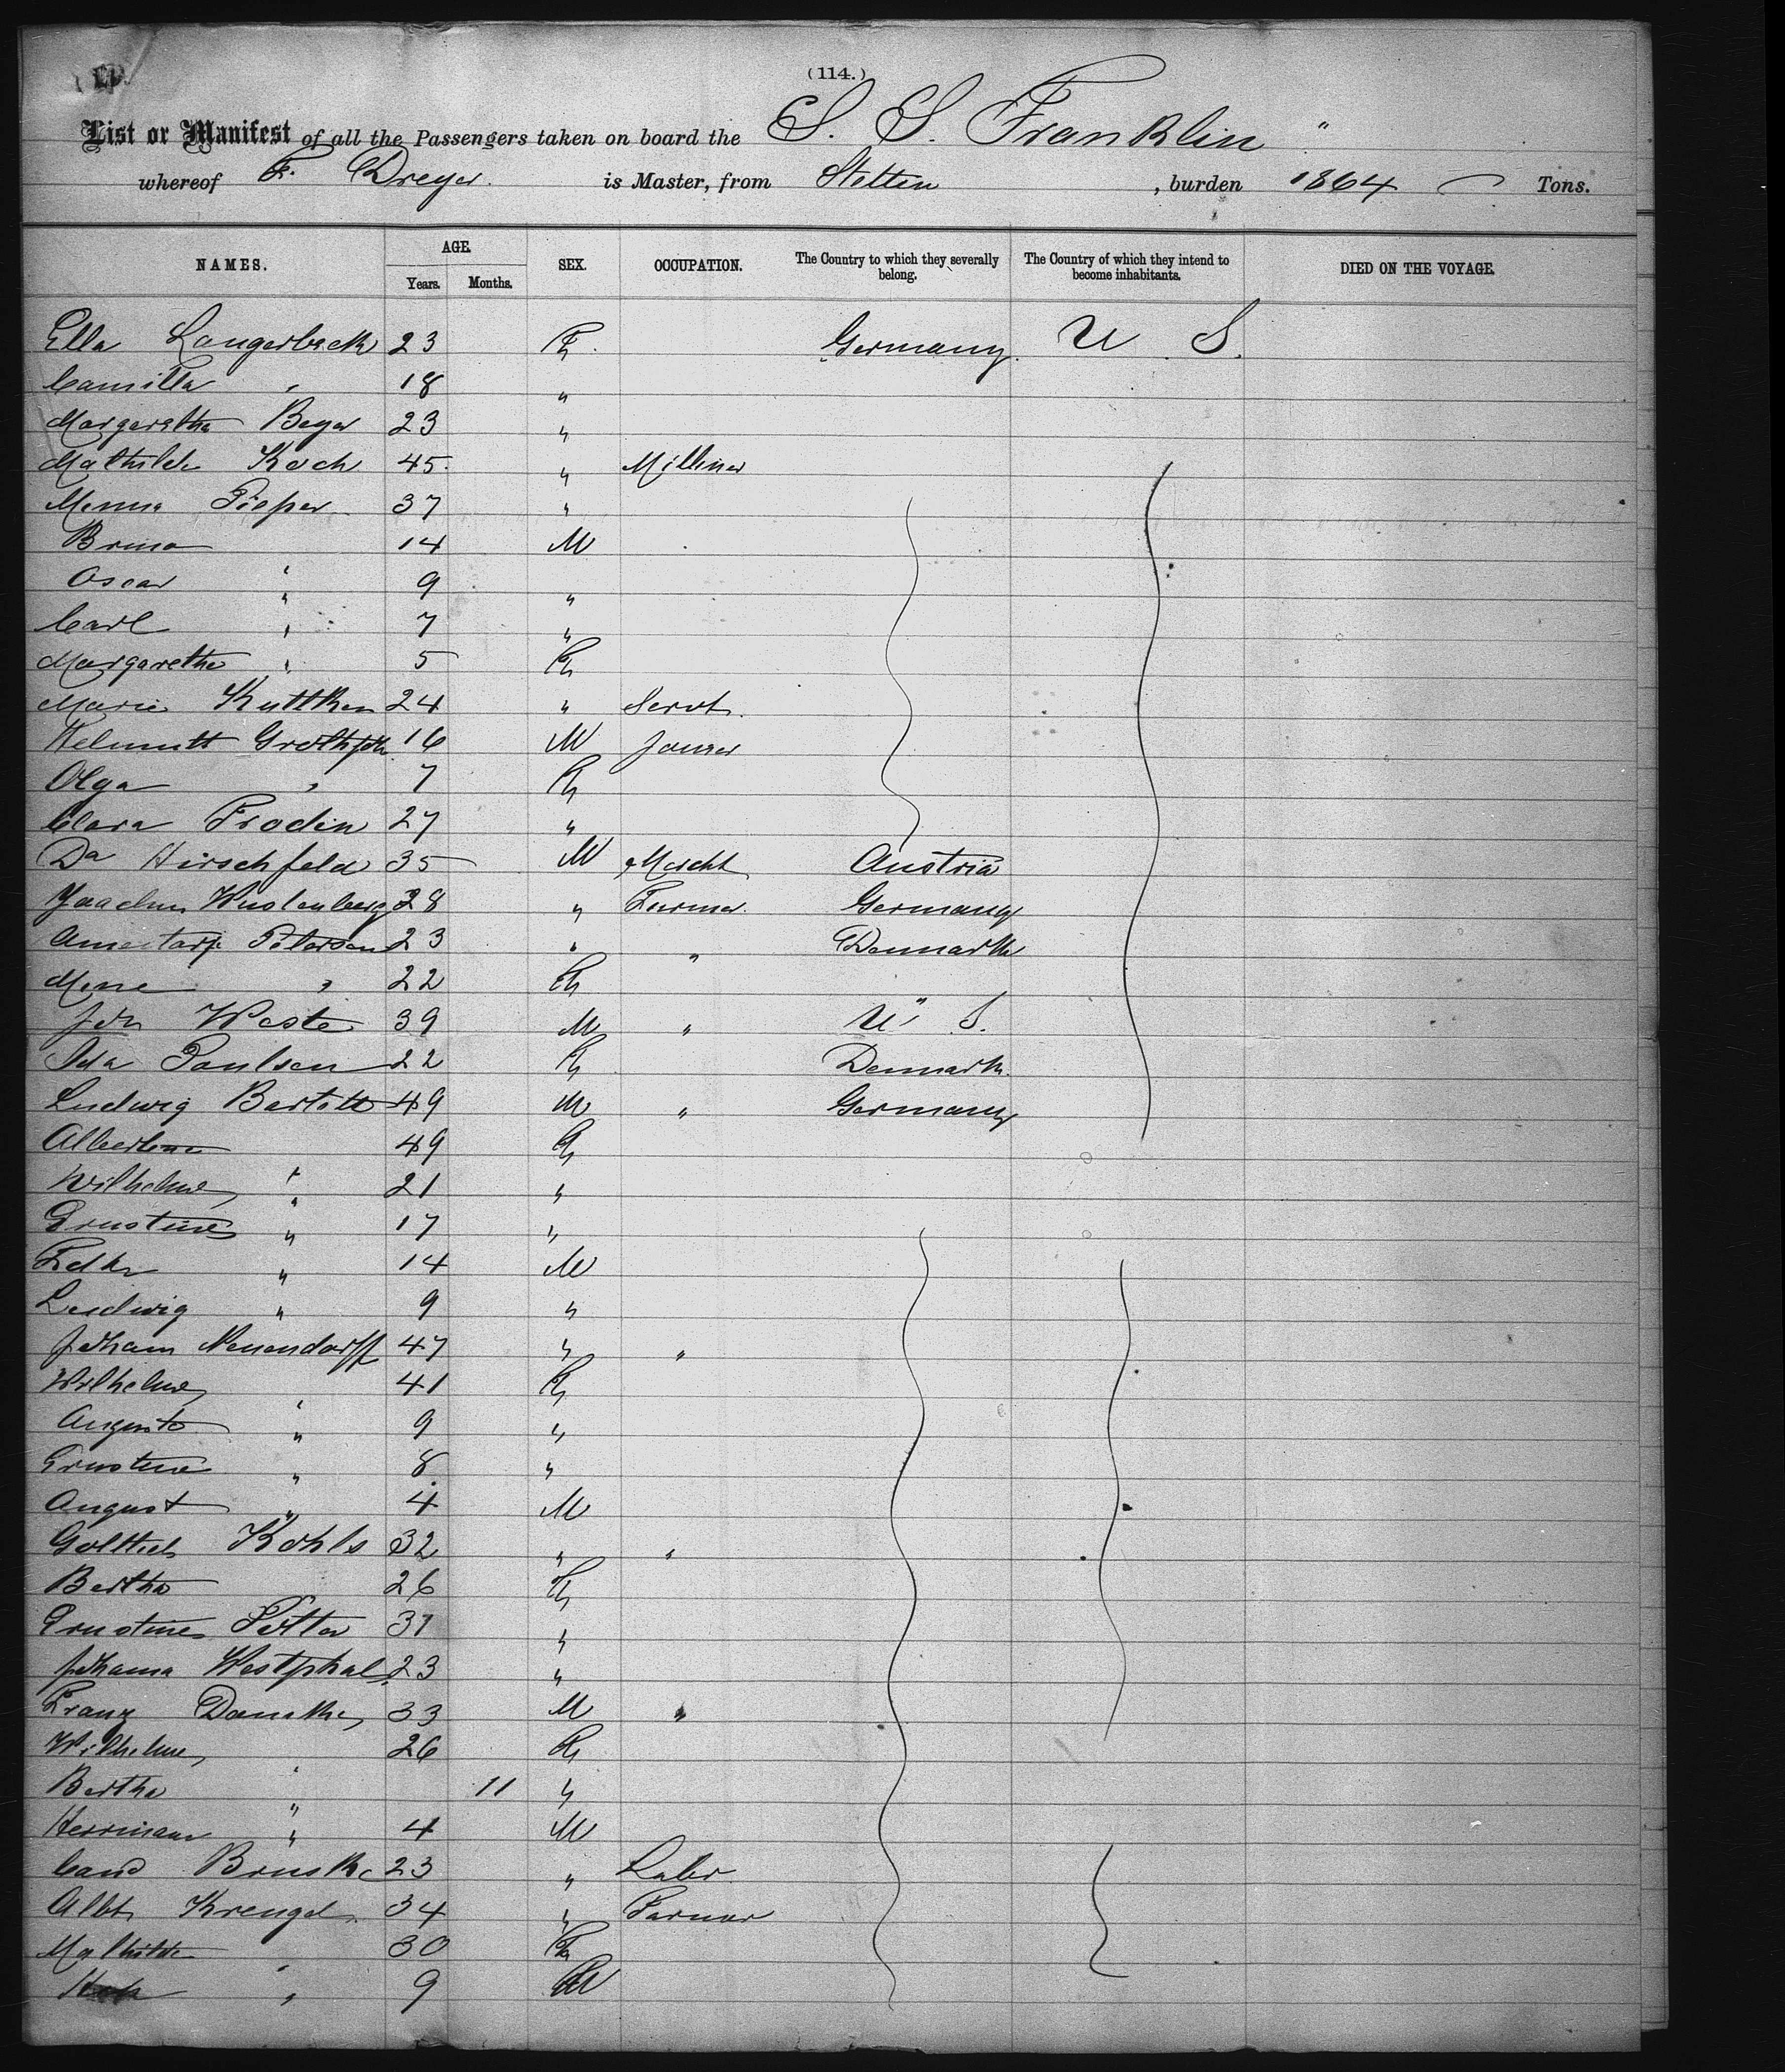 (114.)
List or Manifest of all the Passengers taken on board the S. S. Franklin "
whereof F. Dreyer. is Master, from Stettin, burden 1864 Tons.
NAMES. AGE. Years. Months. SEX. OCCUPATION. The Country to which they severally belong. The Country of which they intend to become inhabitants. DIED ON THE VOYAGE.
Ella Langerbeck 23 F. Germany. U. S.
Camilla " 18 "
Margaretha Beyer 23 "
Mathilde Koch 45 " Milliner
Minna Pieper 37 "
Bruno 14 M
Oscar " 9 "
Carl " 7 "
Margarethe " 5 F
Marie Kuttken 24 " Servt.
Helmutt 16 M
Olga " 7 F
Clara Frodin 27 "
Da Hirschfeld 35 M Mercht Austria
Wustenberg 28 " Farmer. Germany
Petersen 23 " " Denmark
" 22 F "
Joh Weste 39 M " U S.
Ida Paulsen 22 F Denmark.
Ludwig 49 M " Germany
Albertine 49 F
Wilhelme " 21 "
Ernstine " 17 "
14 M
Ludwig " 9 "
Johann Neuendorff 47 " "
Wilhelme 41 F
Auguste " 9 "
Ernstine " 8 "
August " 4 M
Gottlieb Kohls 32 " "
Bertha 26 F
Ernstine 31 "
Johanna Westphal 23 "
Franz 33 M "
Wilhelme 26 F
Bertha " 11 "
Herrmann " 4 M
23 " Labr.
Albt Krengel 34 " Farmer
Mathilde 30 F
" 9 M